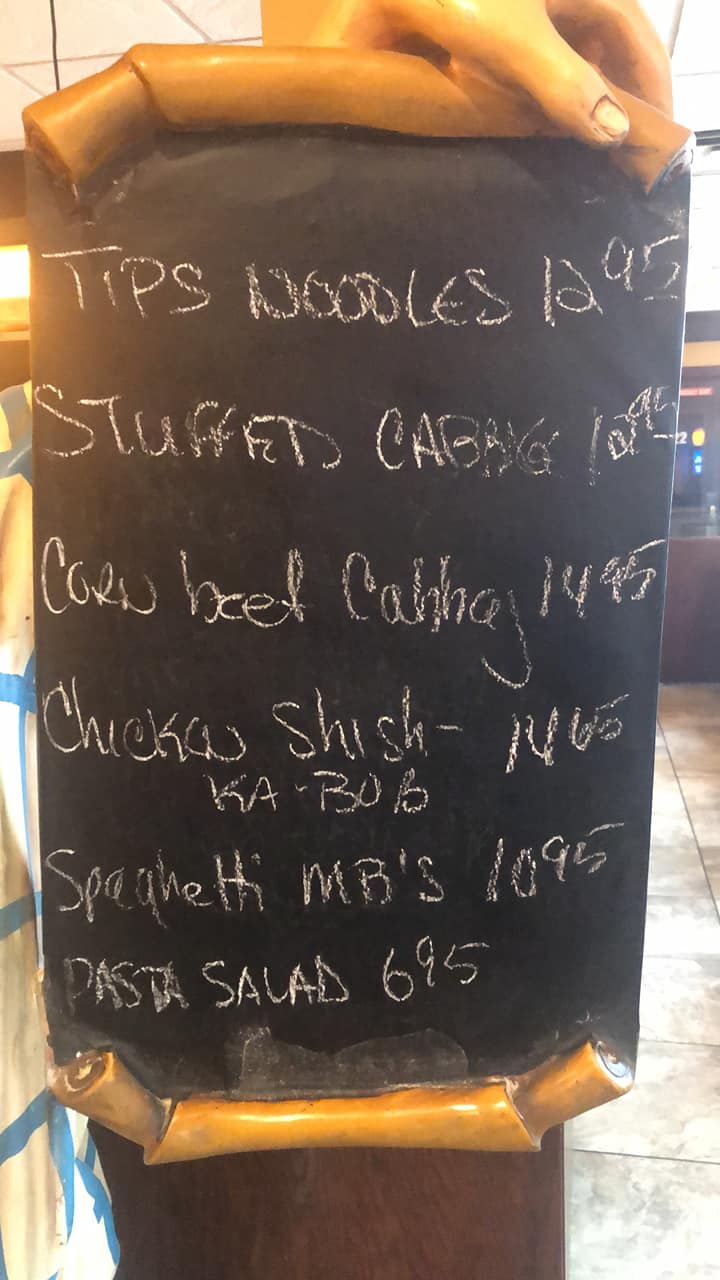 TIPS NOODLES 12 95
STUFFED CABBG 12 95
CORN beef Cabbag 14 95
Chicken Shish- 14 95
KA-BOB
Spaghetti MB'S 10 95
PASTA SALAD 6 95